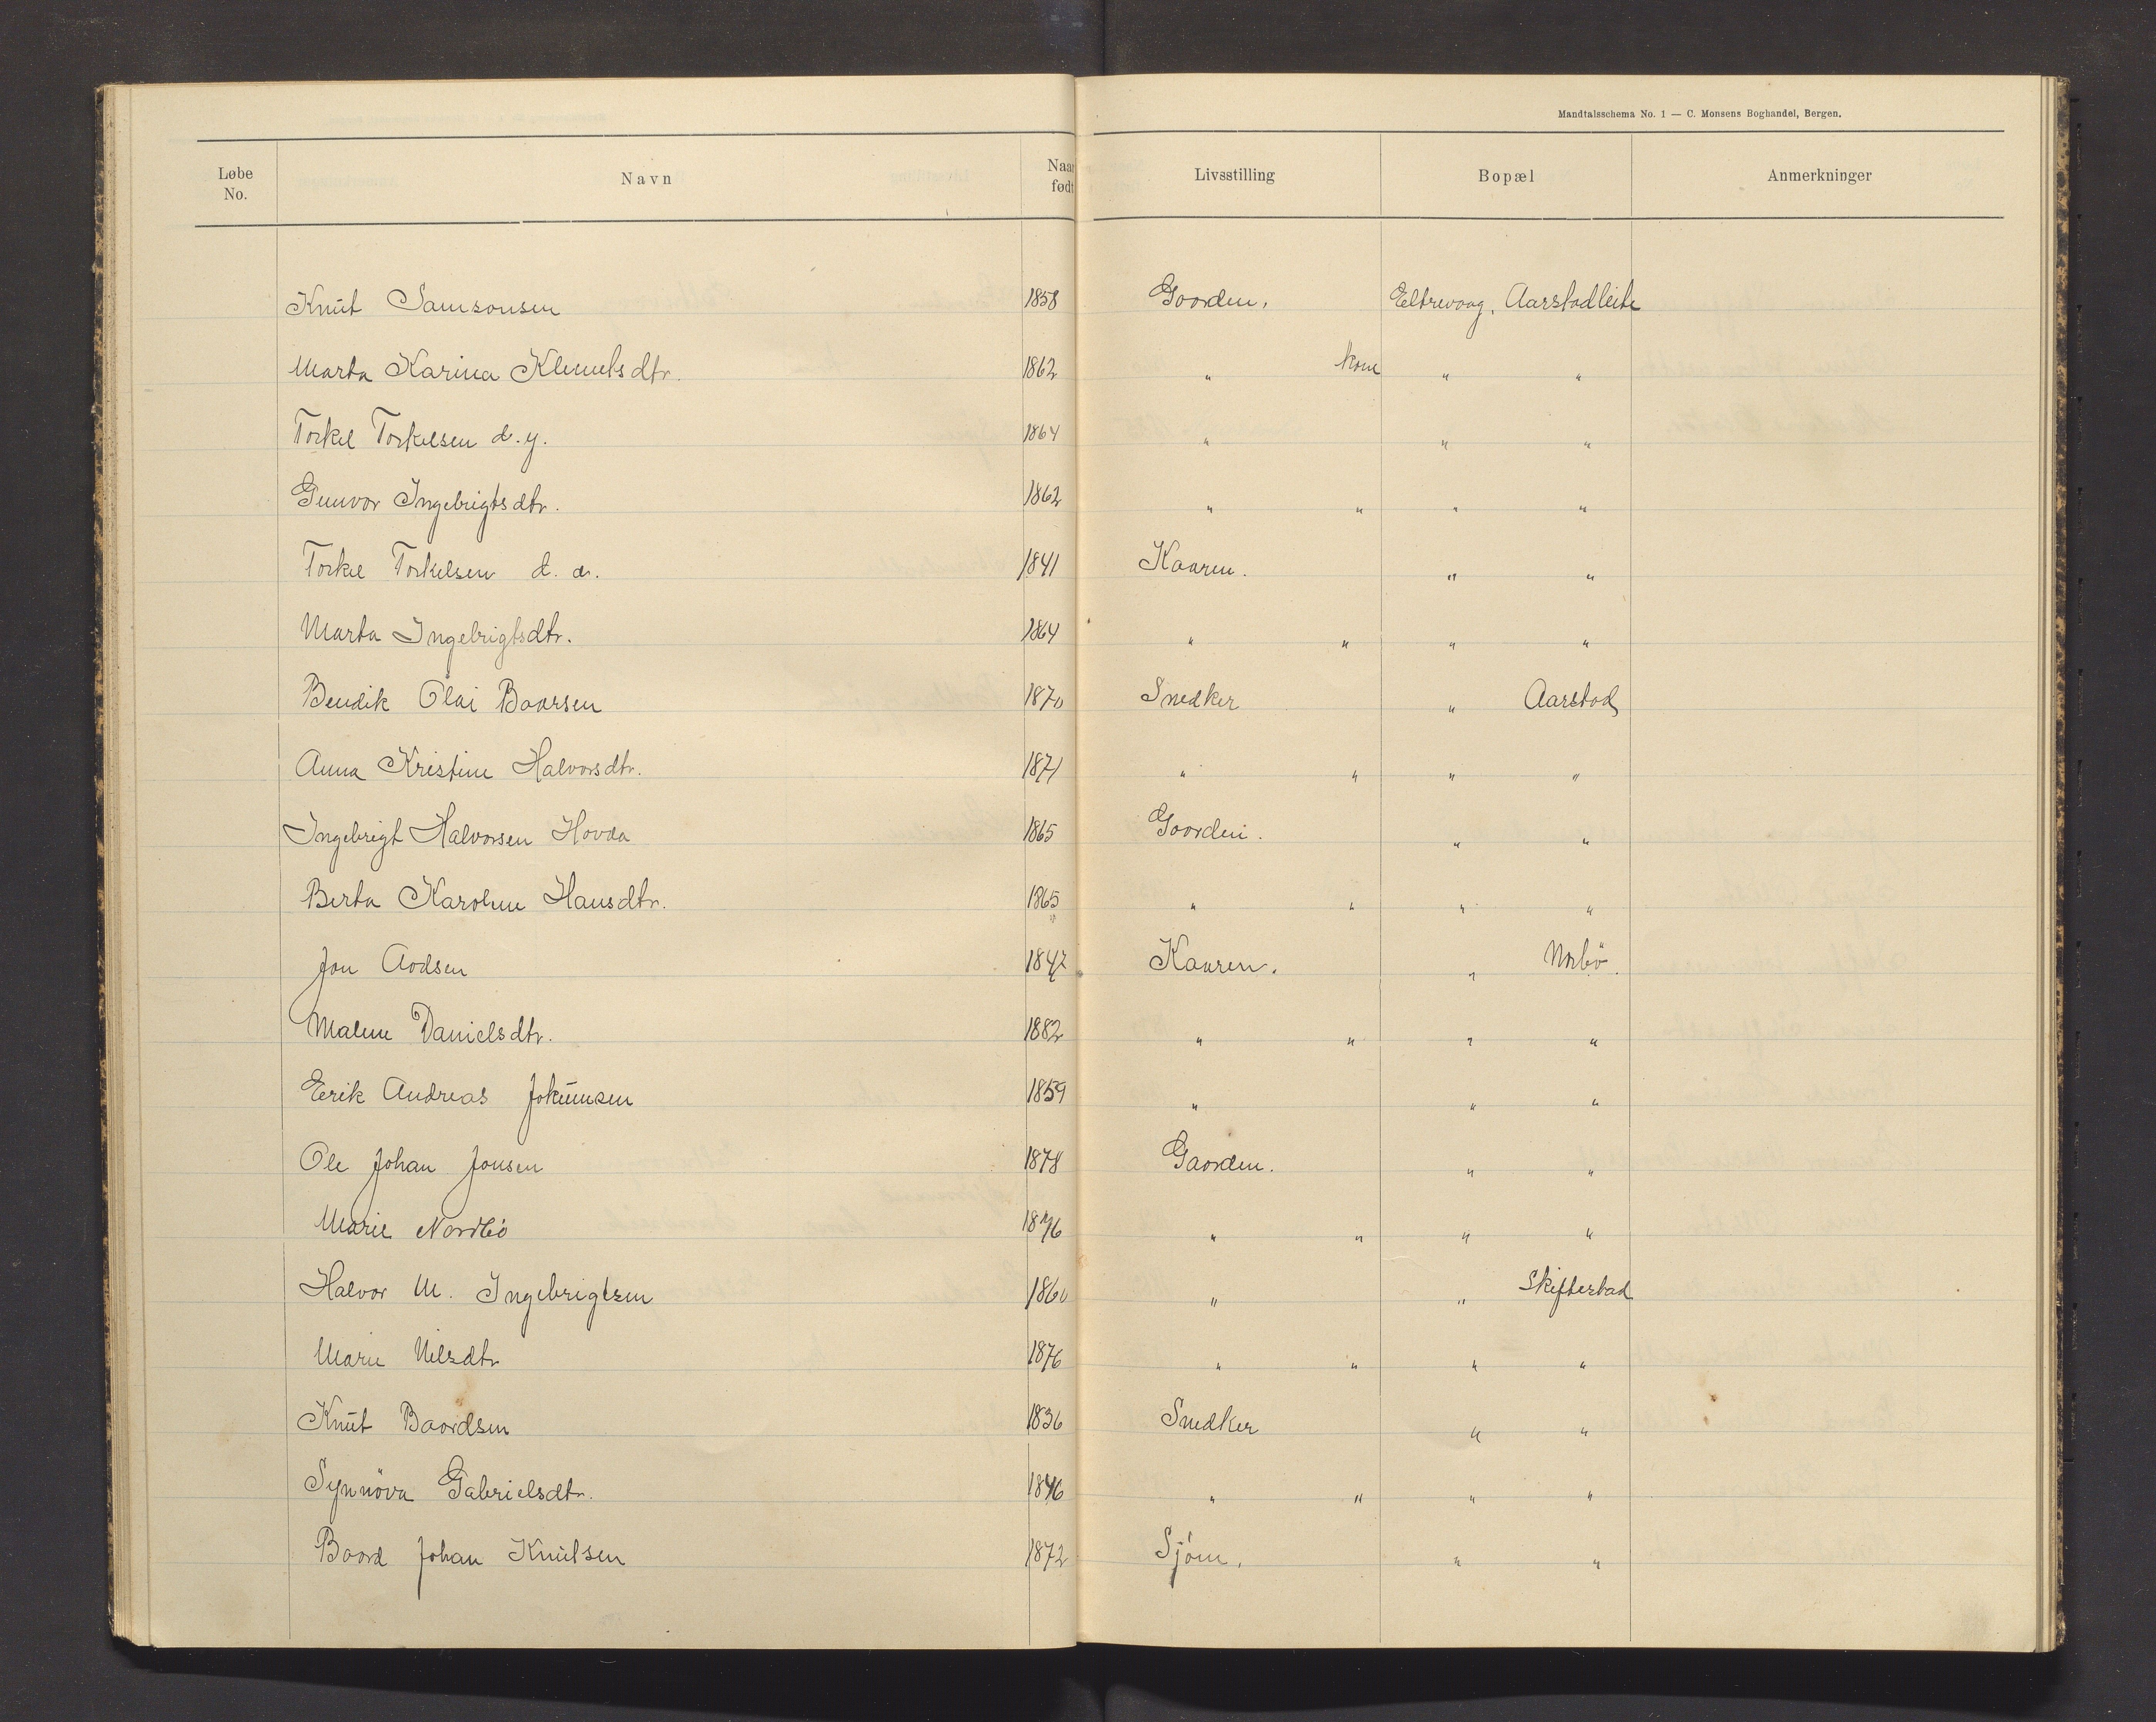 Mandtalsschema No. 1 — C. Monsens Boghandel, Bergen.
Løbe No. Navn Naar født Livsstilling Bopæl Anmerkninger
Knut Samsonsen 1858 Goorden. Eeltrevoag, Aarstadleite
Marta Karina Klemetsdtr. 1862 " kone " "
Torkel Torkelsen d.y. 1864 " " "
Gunvor Ingebrigtsdtr. 1862 " " " "
Torkel Torkelsen d. æ. 1841 Kaaren. " "
Marta Ingebrigtsdtr. 1864 " " " "
Bendik Olai Baarsen 1870 Snedker " Aarstad
Anna Kristine Halvorsdtr. 1871 " " " "
Ingebrigt Halvorsen Hovda 1865 Goorden. " "
Berta Karoline Hansdtr. 1865 " " " "
Jon Aodsen 1847 Kaaren. " Norbö.
Malene Danielsdtr. 1882 " " " "
Eerik Andreas Jokumsen 1859 " " "
Ole Johan Jonsen 1878 Gaorden. " "
Marie Nordbö 1876 " " " "
Halvor M. Ingebrigtsen 1860 " " Skifterstad
Marie Nilsdtr 1876 " " " "
Knut Baordsen 1836 Snedker " "
Synnöva Gabrielsdtr. 1846 " " " "
Baord Johan Knutsen 1872 Sjöm. " "